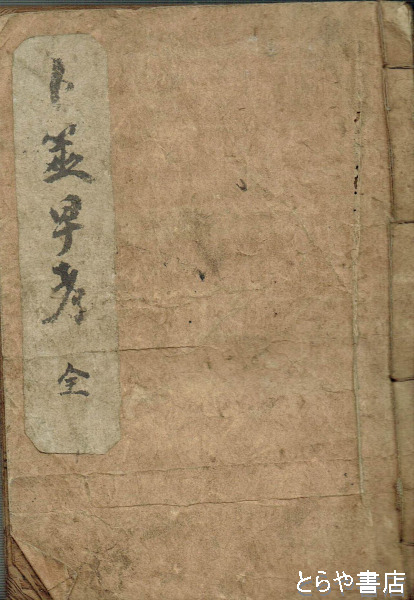 卜筮早考 全
とらや書店